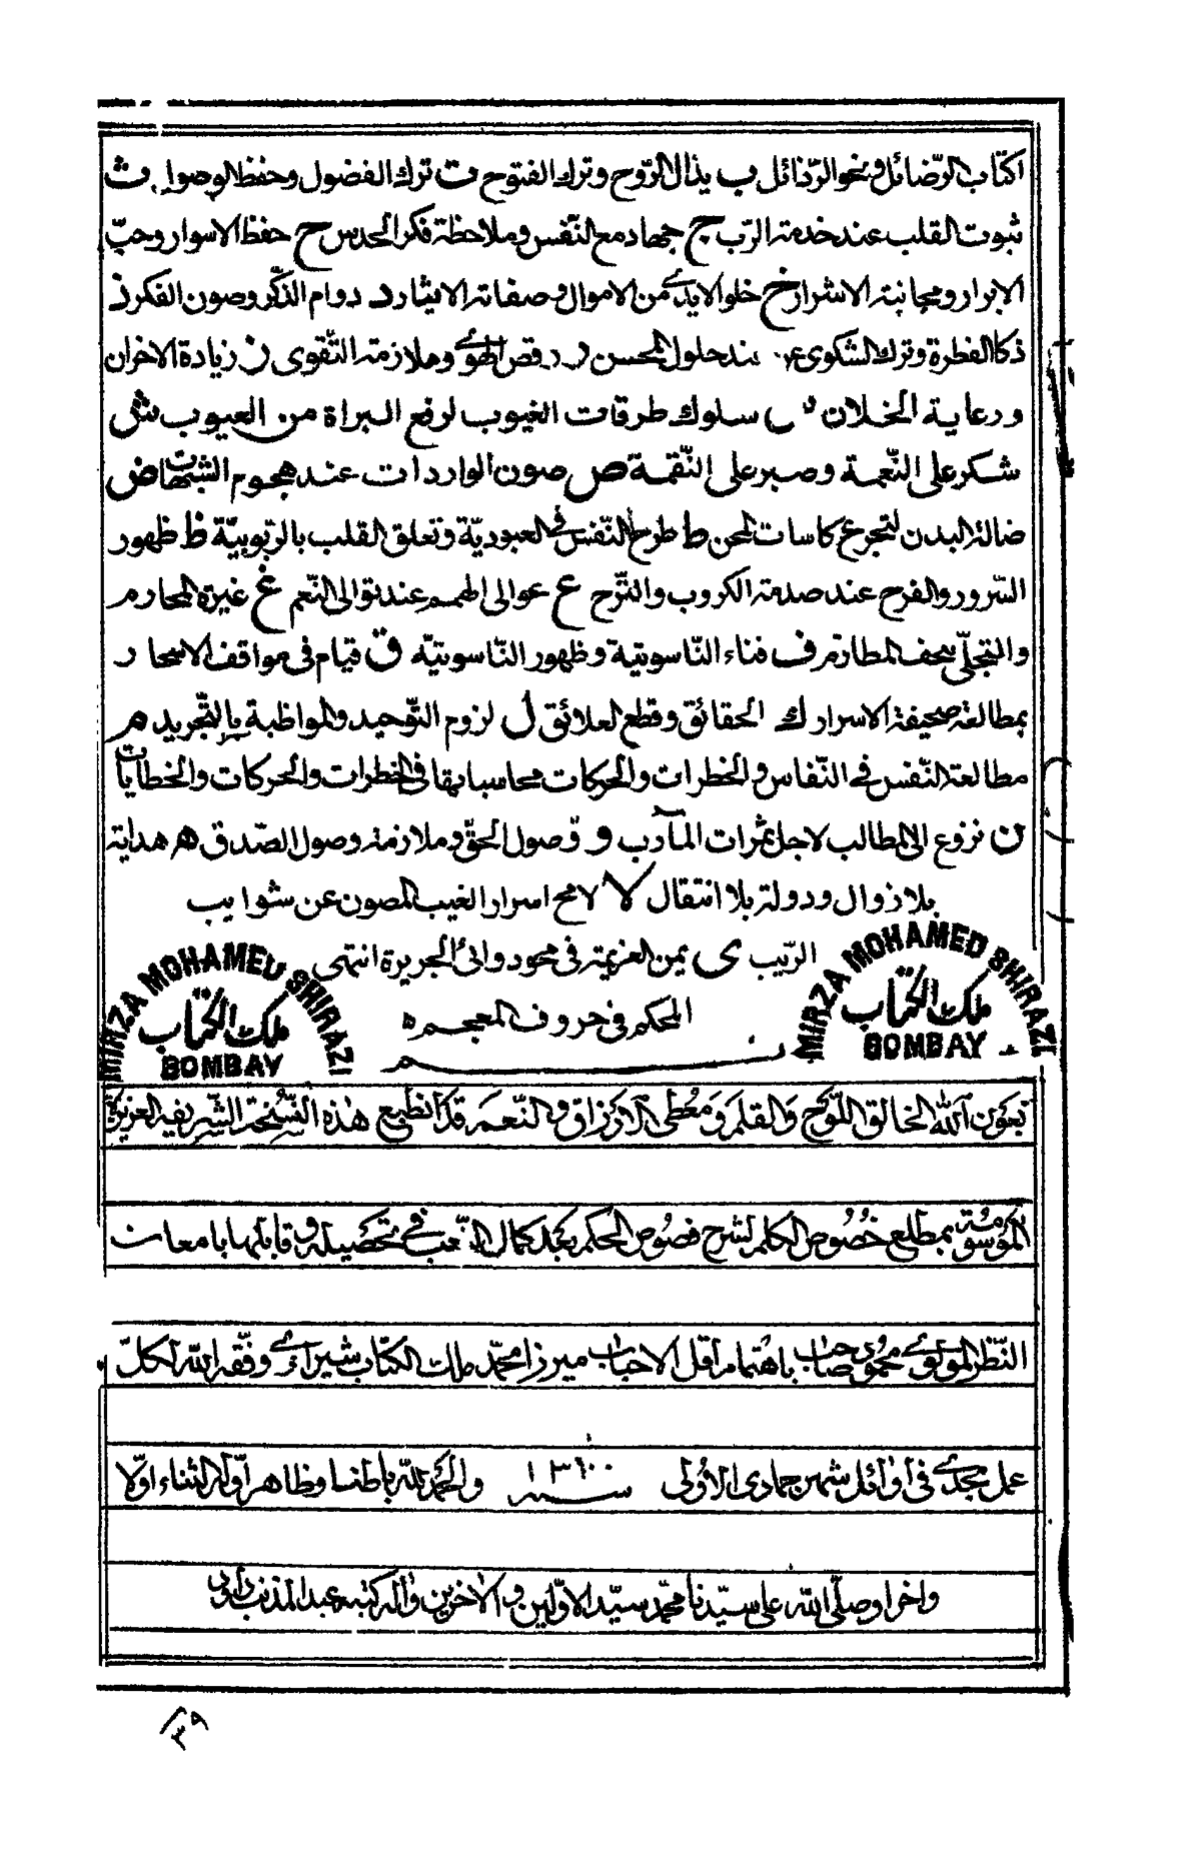 اكتاب الرضائل ونحو الرّذائل ب بذال الرّوح وترك الفتوح ت ترك الفضول وحفظ الوصول ث
ثبوت القلب عند خدمة الرّب ج جهاد مع النّفس وملاحظة فكر الحدس ح حفظ الاسوار وحبّ
الابرار ومجانبة الاشرار خ خلو الايدى من الاموال وصفاته الايثار د دوام الذّكر وصون الفكر ذ
ذكا الفطرة وترك الشكوى عند حلول المحسن ر رقص الهوى وملازمة التّقوى ز زيادة الاخران
ورعاية الخلان س سلوك طرقات الغيوب لرفع البراة من العيوب ش
شكر على النّعمة وصبر على النّقمة ص صون الواردات عند هجوم الشبهات ض
ضالة البدن لتجرع كاسات المحن ط طرح النّفس فى العبوديّة وتعلق القلب بالرّبوبيّة ظ ظهور
السّرور والفرح عند صدمة الكروب والتّرح ع عوالى الهمم عند توالى النّعم غ غيرة المحارم
والتجلّى بحف المطارم ف فناء النّاسوتية وظهور النّاسوتيّة ق قيام فى مواقف الاسحار
بمطالعة صحيفة الاسرار ك الحقائق وقطع العلائق ل لزوم التّوحيد والمواظبة بالتّجريد م
مطالعة النّفس فى النّفاس والخطرات والحركات محاسباتها فى الخطرات والحركات والخطايات
ن نزوع الى المطالب لاجل ثمرات المآرب و وصول الحقّ وملازمة وصول الصّدق ه هداية
بلا زوال ودولة بلا انتقال لا لامح اسرار الغيب المصون عن شوايب
الرّيب ى يمن العزيمة فى محود وانى الجريرة انتهى
المحكم فى حروف المعجم ه
تم
MIRZA MOHAMED SHIRAZI
ملك الكتاب
BOMBAY
MIRZA MOHAMED SHIRAZI
ملك الكتاب
BOMBAY
بعون الله الخالق اللّوح والقلم ومعطى الارزاق والنّعم قد انطبع هٰذه النّسخة الشّريفه العزيزة
الموسومة بمطلع خُصُوص الكلم لشرح فصُوص الحكم بجد كمال التّعب فى تحصيله وقابلها بامعان
النّظر المولوى محمود صاحب باهتمام اقل الاحباب ميرزا محمّد ملك الكتّاب شيرازى وفّقه الله لكلّ
عمل يجدى فى اوائل شهر جمادى الاولى سنه ١٣٠٠ والحمد لله باطنا وظاهرا وله الثناء اوّلا
واخرا وصلّى الله على سيّدنا محمّد سيّد الاوّلين والاخرين وآله كتبه عبد المذنب
٣٩